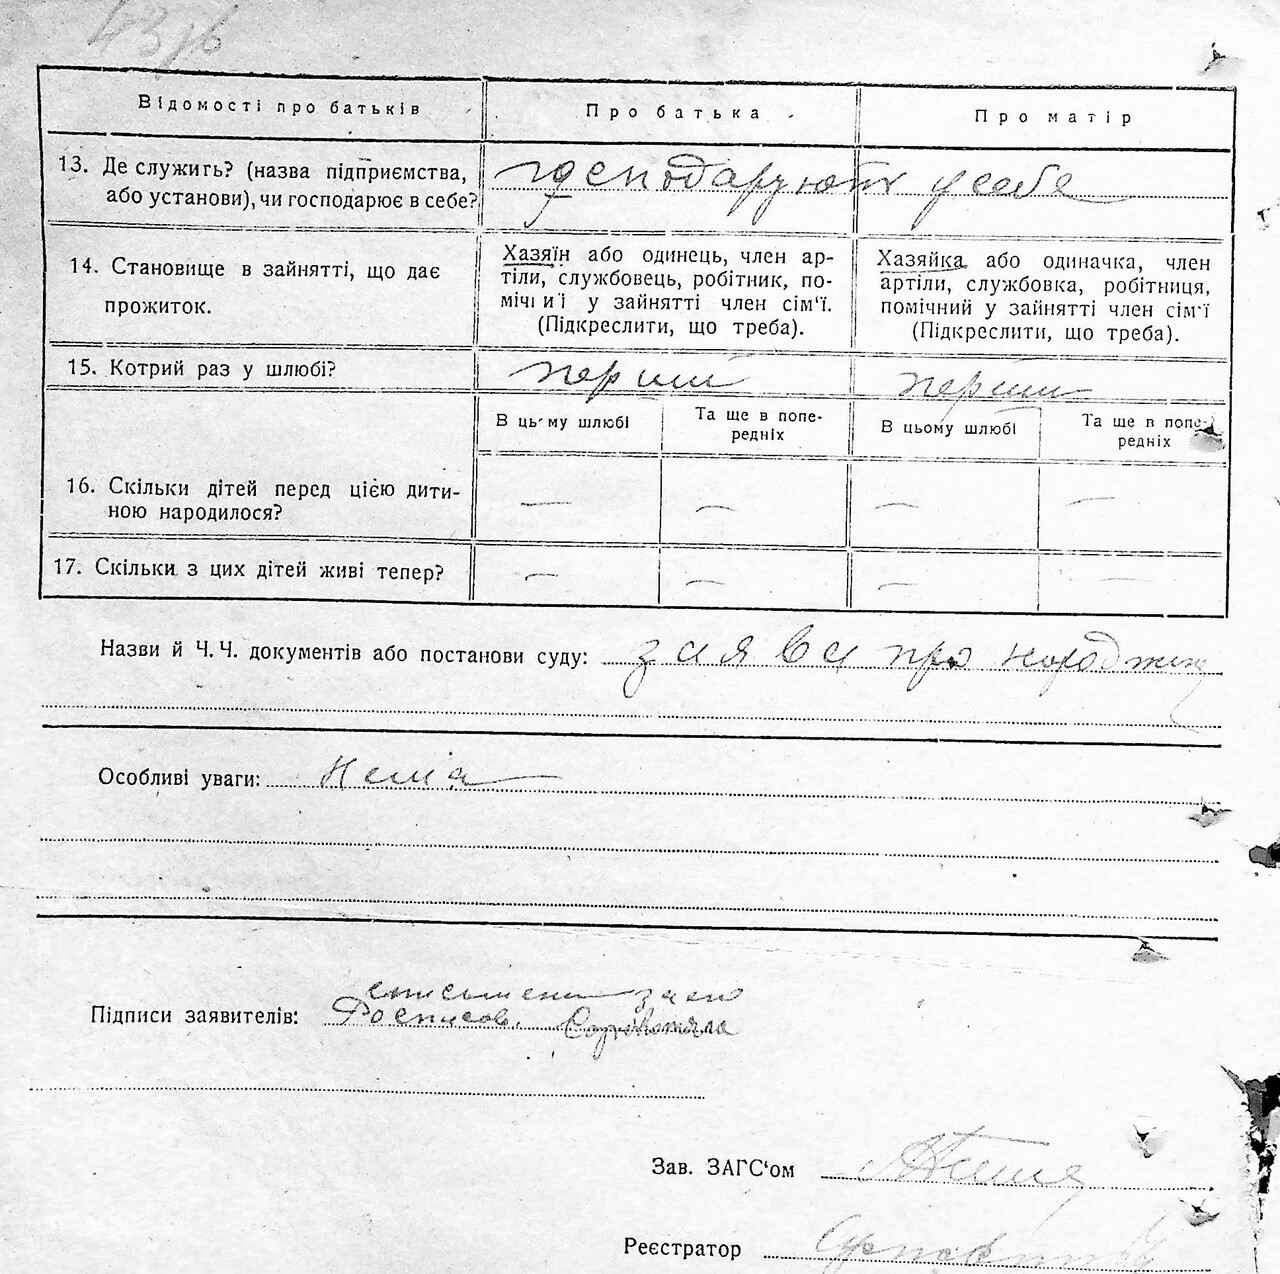 Відомості про батьків
Про батька
Про матір
13. Де служить? (назва підприємства, або установи), чи господарює в себе?
господарують у себе
14. Становище в зайнятті, що дає прожиток.
Хазяїн або одинець, член ар-
тіли, службовець, робітник, по-
мічний у зайнятті член сім'ї.
(Підкреслити, що треба).
Хазяйка або одиначка, член
артіли, службовка, робітниця,
помічний у зайнятті член сім'ї
(Підкреслити, що треба).
15. Котрий раз у шлюбі?
перший
перший
В цьому шлюбі
Та ще в попе-
редніх
В цьому шлюбі
Та ще в попе-
редніх
16. Скільки дітей перед цією дити-
ною народилося?
— — — —
17. Скільки з цих дітей живі тепер?
— — — —
Назви й Ч.Ч. документів або постанови суду: заява про народжен
Особливі уваги: нема
Підписи заявителів:
Зав. ЗАГС'ом
Реєстратор